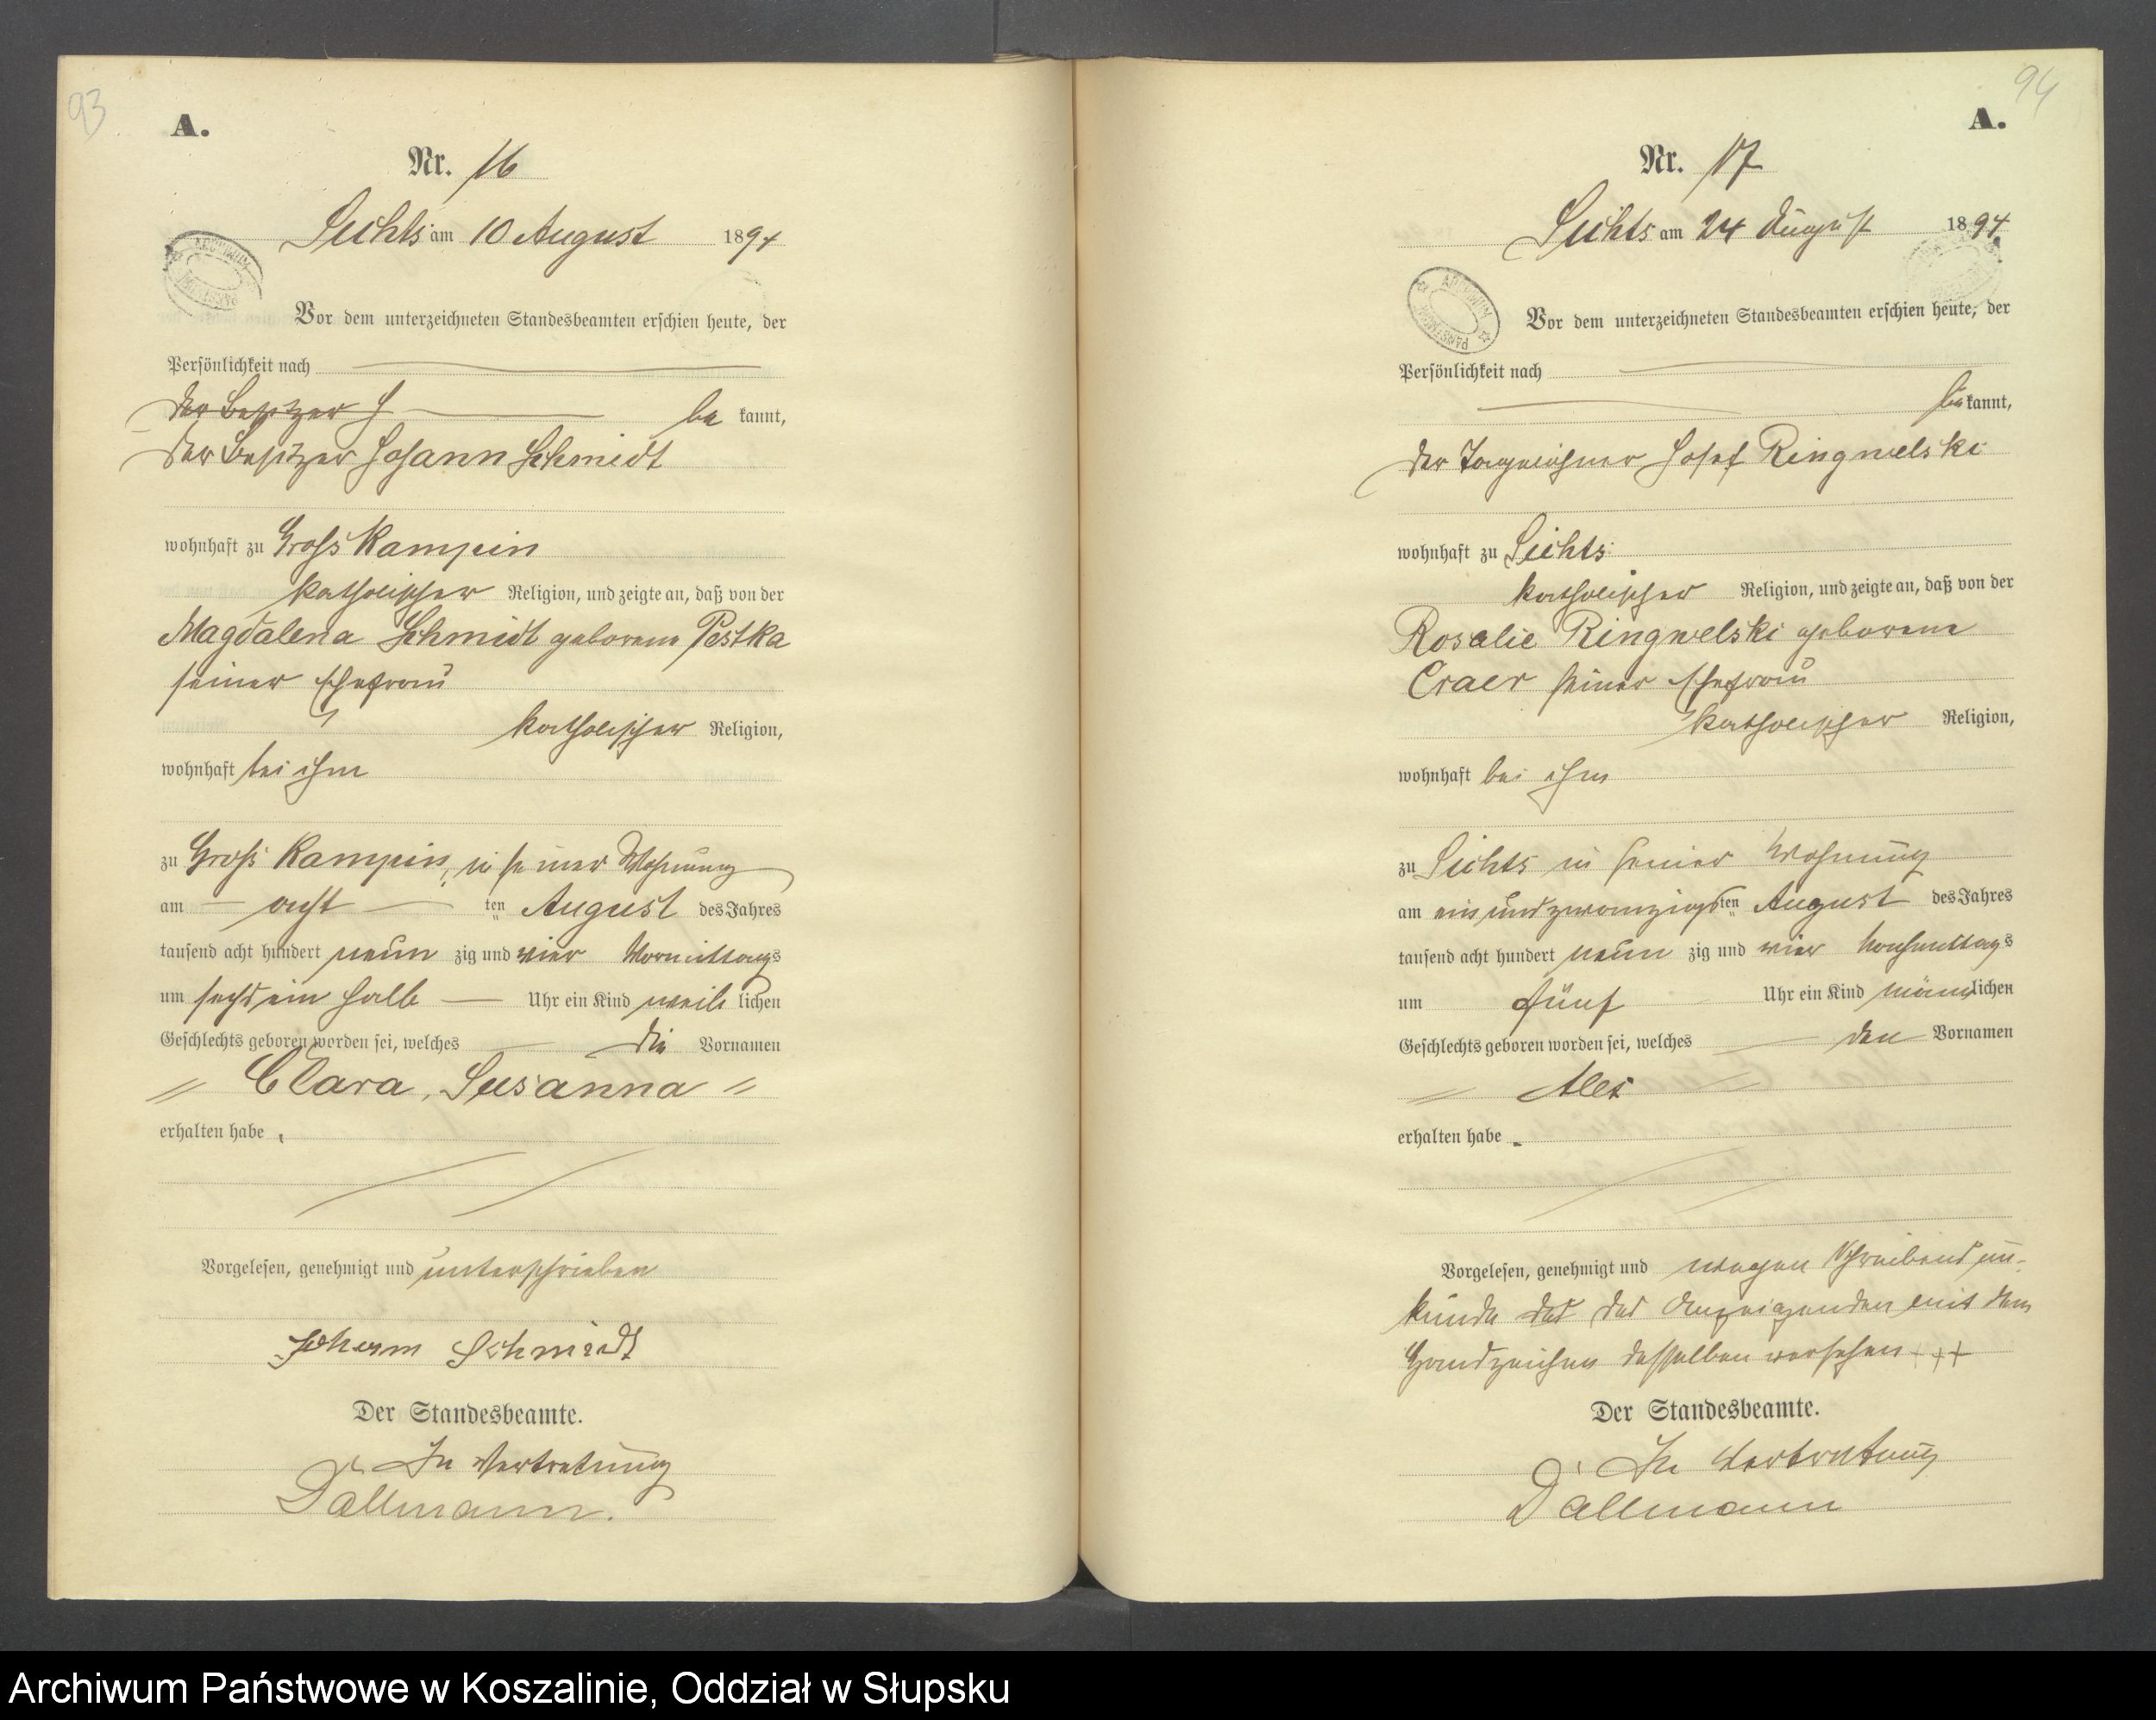 93
A.
Nr. 16
Lichts am 10 August 1894
Vor dem unterzeichneten Standesbeamten erschien heute, der
Persönlichkeit nach
der Besitzer J be kannt,
der Besitzer Johann Schmidt
wohnhaft zu Gross Kampin
katholischer Religion, und zeigte an, daß von der
Magdalena Schmidt geborene Pestka
seiner Ehefrau
katholischer Religion,
wohnhaft bei ihm
zu Gross Kampin, in seiner Wohnung
am acht ten August des Jahres
tausend acht hundert neun zig und vier Vormittags
um sechs ein halb Uhr ein Kind weib lichen
Geschlechts geboren worden sei, welches die Vornamen
Clara, Susanna
erhalten habe.
Vorgelesen, genehmigt und unterschrieben
Johann Schmidt
Der Standesbeamte.
In Vertretung
Dallmann.
94
A.
Nr. 17
Lichts am 24 August 1894.
Vor dem unterzeichneten Standesbeamten erschien heute, der
Persönlichkeit nach
be kannt,
der Tagelöhner Josef Ringwelski
wohnhaft zu Lichts
katholischer Religion, und zeigte an, daß von der
Rosalie Ringwelski geborene
Craer seiner Ehefrau
katholischer Religion,
wohnhaft bei ihm
zu Lichts in seiner Wohnung
am ein und zwanzigsten August des Jahres
tausend acht hundert neun zig und vier Nachmittags
um fünf Uhr ein Kind männlichen
Geschlechts geboren worden sei, welches den Vornamen
Alex
erhalten habe.
Vorgelesen, genehmigt und wegen Schreibens un-
kunde des des Anzeigenden mit dem
Handzeichen desselben versehen +++
Der Standesbeamte.
In Vertretung
Dallmann
Archiwum Państwowe w Koszalinie, Oddział w Słupsku